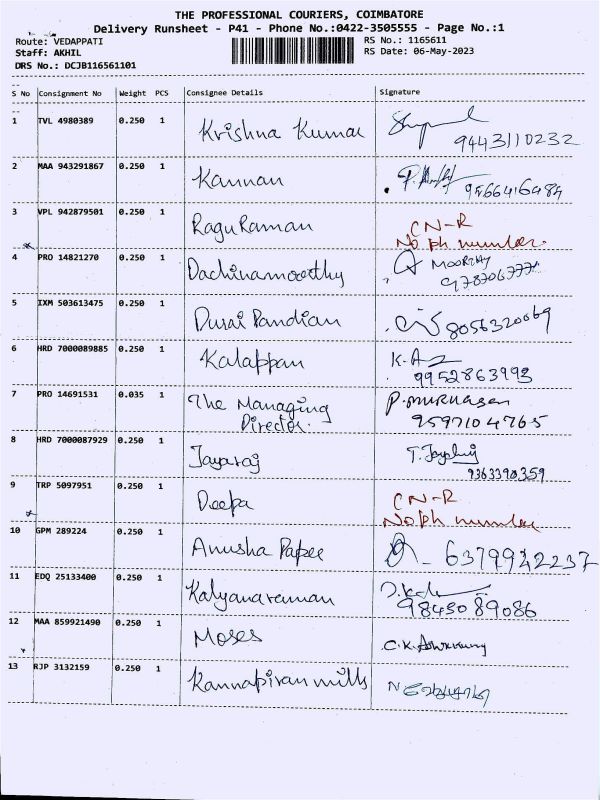 THE PROFESSIONAL COURIERS, COIMBATORE
Delivery Runsheet - P41 - Phone No.:0422-3505555 - Page No.:1
Route: VEDAPPATI RS No.: 1165611
Staff: AKHIL RS Date: 06-May-2023
DRS No.: DCJB116561101
S No Consignment No Weight PCS Consignee Details Signature
1 TVL 4980389 0.250 1 Krishna Kumar
9443110232
2 MAA 943291867 0.250 1 Kannan
9566416484
3 VPL 942879501 0.250 1 Ragu Raman CN-R
No ph number.
4 PRO 14821270 0.250 1 Dachinamoorthy MOORTHY
5 IXM 503613475 0.250 1 Durai Pandian 8056320069
6 HRD 7000089885 0.250 1 Kalappan K.A
9952863993
7 PRO 14691531 0.035 1 The Managing P.murugasen
Director. 9597104765
8 HRD 7000087929 0.250 1 Jayaraj
9363390359
9 TRP 5097951 0.250 1 Deepa CN-R
No ph number
10 GPM 289224 0.250 1 Anusha Paper 6379942237
11 EDQ 25133400 0.250 1 Kalyanaraman
9843089086
12 MAA 859921490 0.250 1 Moses
13 RJP 3132159 0.250 1 Kannapiran mills